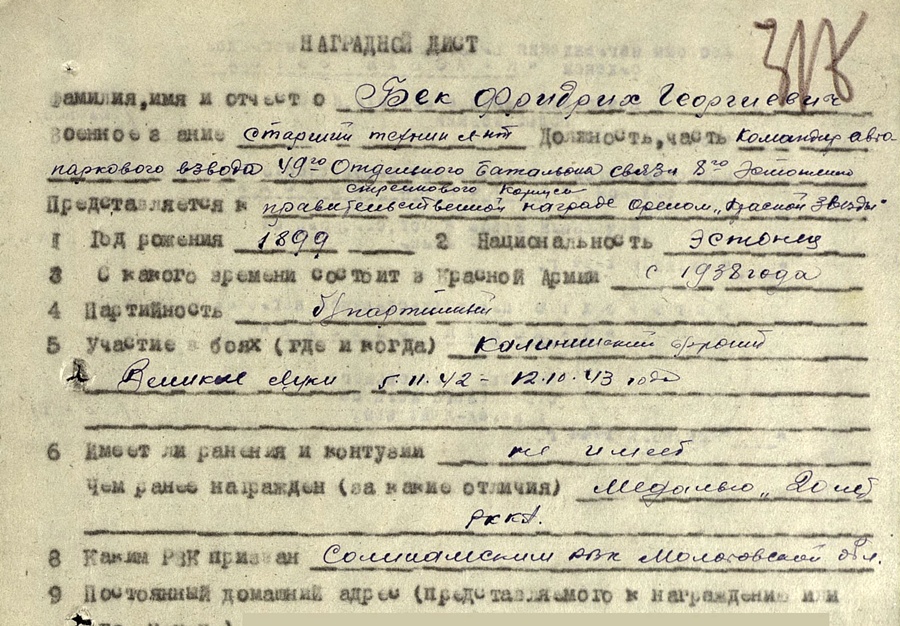 НАГРАДНОЙ ЛИСТ
Фамилия, имя и отчест о Бек Фридрих Георгиевич
Военное з ание старший техник л-нт Должность, часть командир авто-
паркового взвода 49го Отдельного Батальона связи 8го Эстонского
стрелкового корпуса
Представляется к правительственной награде орденом „Красной Звезды"
1 Год рожения 1899 2 Национальность Эстонец
3 С какого времени состоит в Красной Армии с 1938 года
4 Партийность б/партийный
5 Участие в боях (где и когда) Калининский фронт
Великие Луки 5.11.42 – 12.10.43 года
6 Имеет ли ранения и контузии не имеет
Чем ранее награжден (за какие отличия) Медалью „20 лет
РККА.
8 Каким РВК призван РВК Молотовской обл.
9 Постоянный домашний адрес (представляемого к награждению или